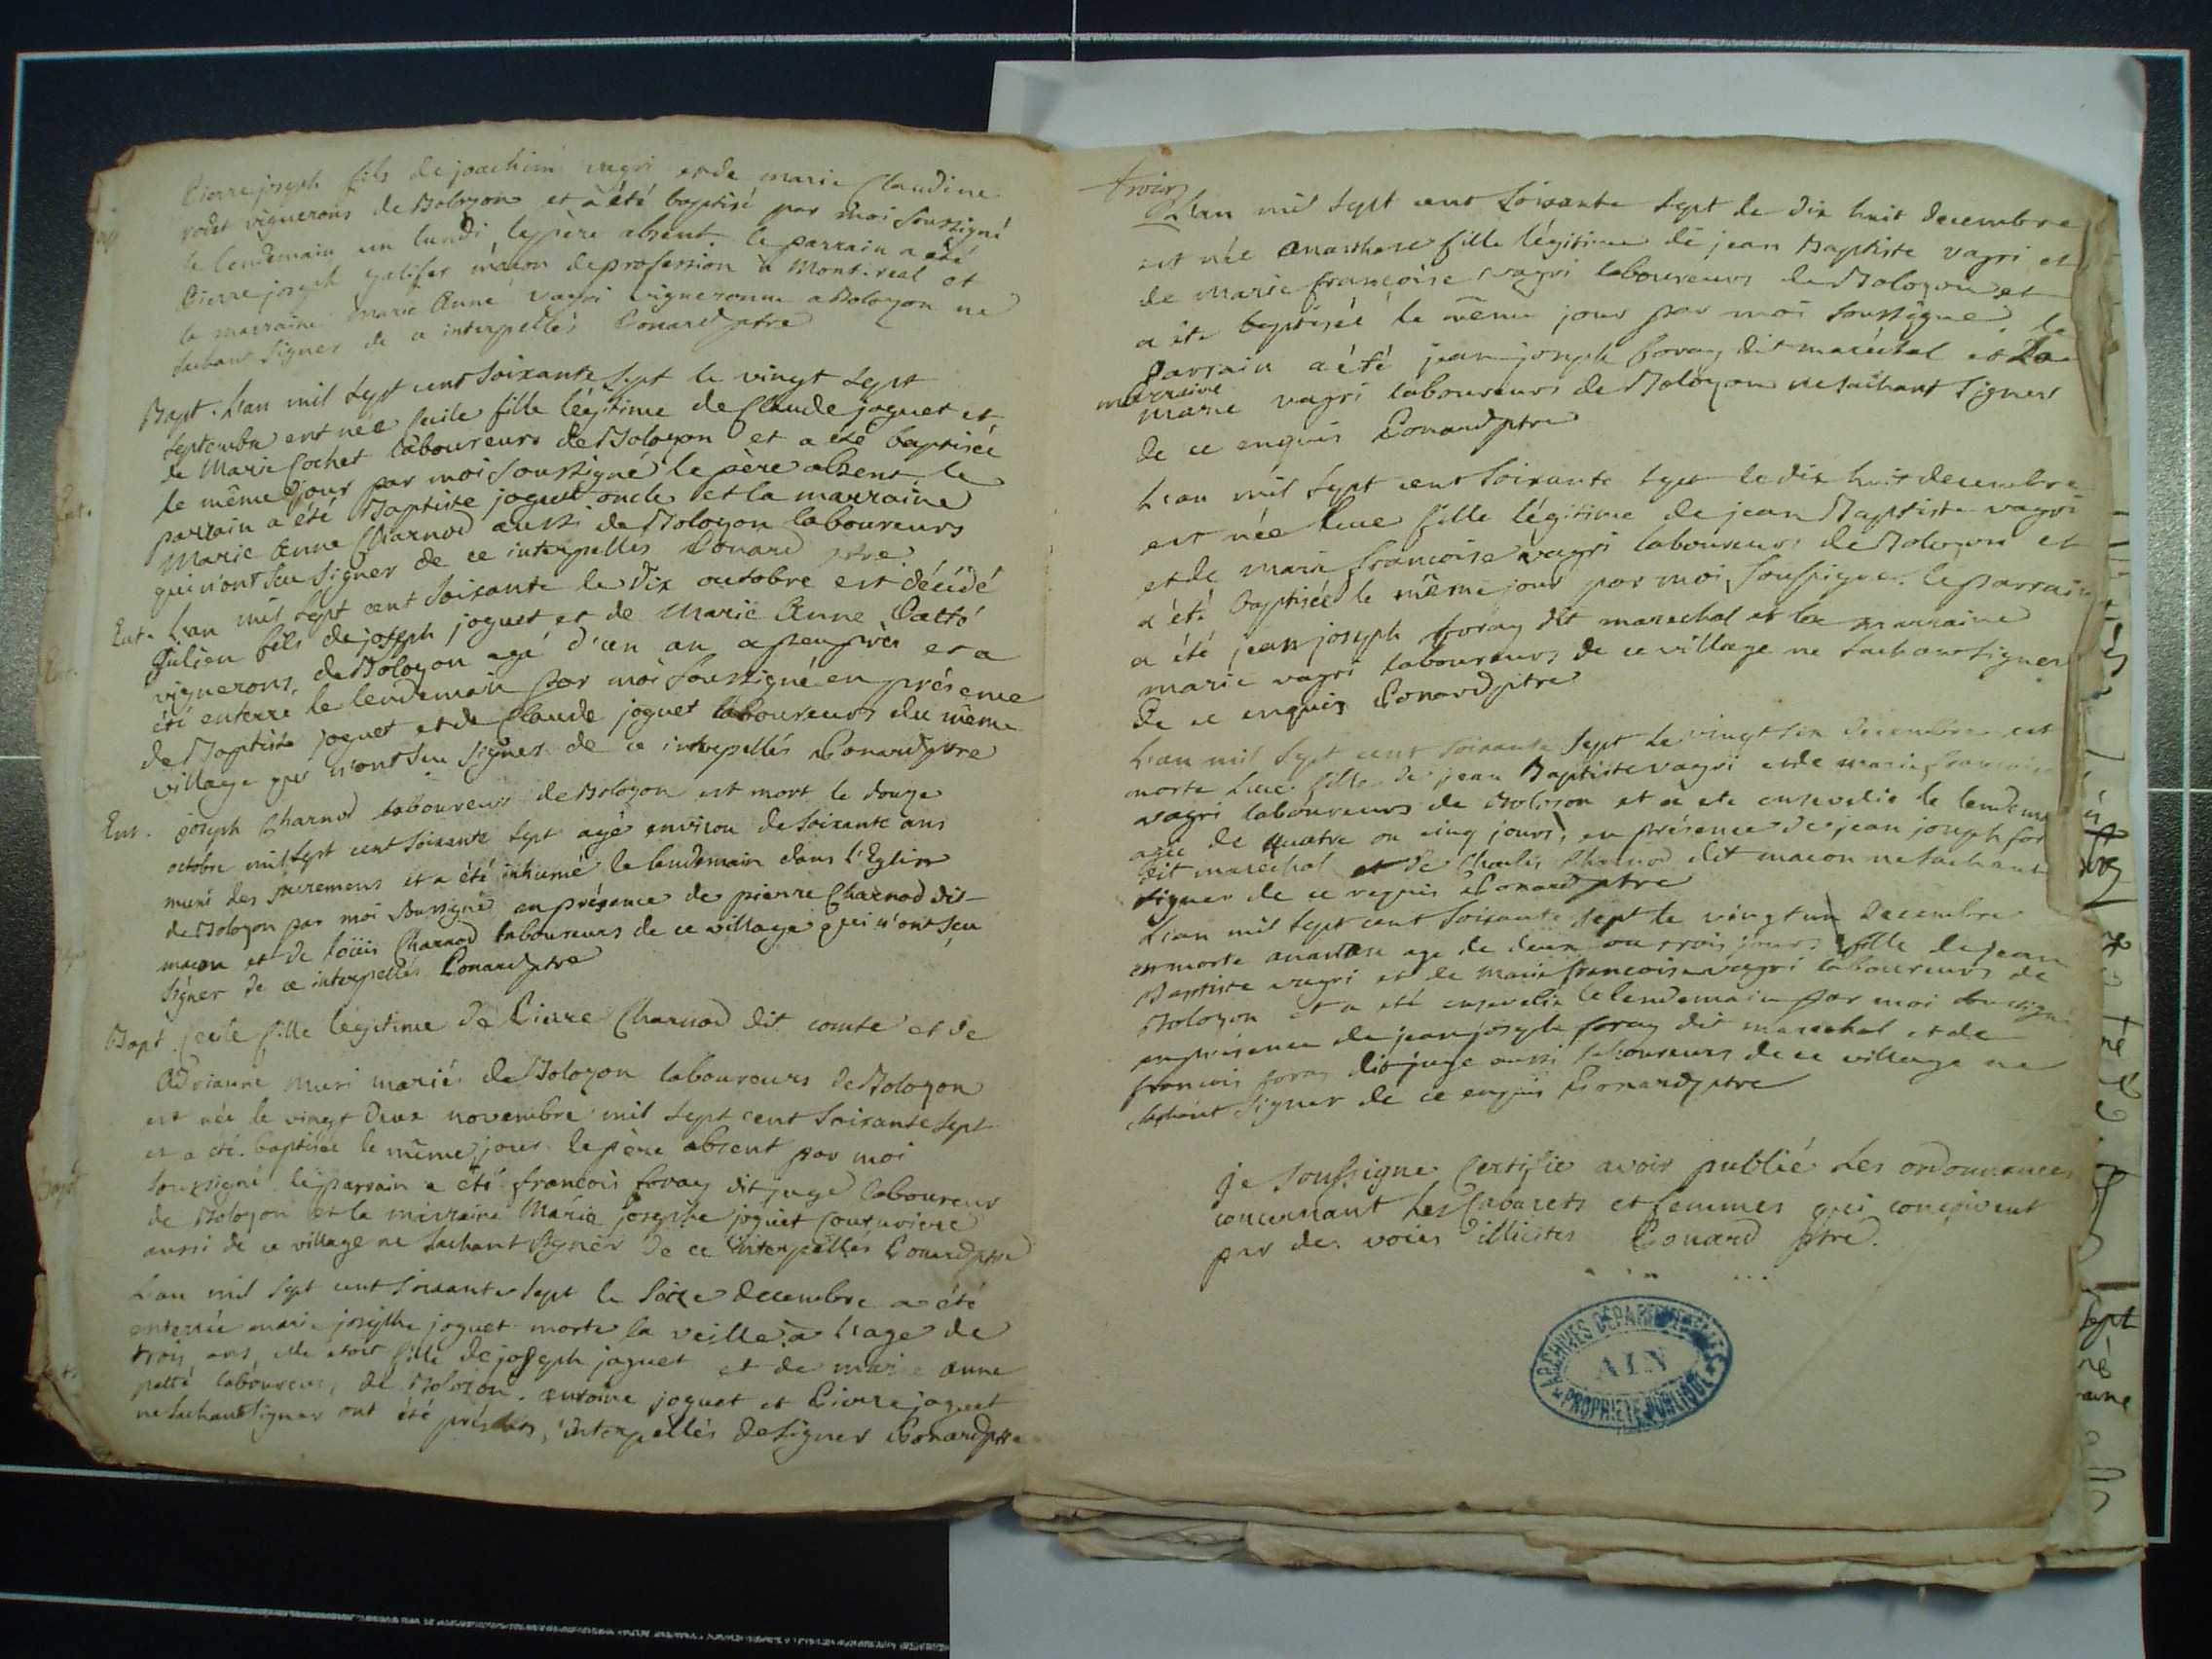 Pierre joseph fils de joachim vagri et de marie Claudine
rodet vignerons de Bolozon et a été baptisé par moi soussigné
le lendemain un lundi le père absent. le parrain a été
Pierre joseph maçon de profession a Montreal et
la marraine Marie Anne vagri vigneronne a Bolozon ne
sachant signer de ce interpellés Conard ptre
Bapt. L'an mil sept cent soixante sept le vingt sept
septembre est née fille légitime de Claude joguet et
de Marie Cochet laboureurs de Bolozon et a été baptisée
le même jour par moi soussigné le père absent le
parrain a été Baptiste joguet oncle et la marraine
Marie Anne Charnod aussi de Bolozon laboureurs
qui n'ont scu signer de ce interpellés Conard ptre.
Ent. L'an mil sept cent soixante le dix octobre est décédé
julien fils de joseph joguet et de Marie Anne
vignerons, de Bolozon agé d'un an a peu près et a
été enterré le lendemain par moi soussigné en présence
de Baptiste joguet et de Claude joguet laboureurs du même
village qui n'ont scu signer de ce interpellés Conard ptre
Ent. joseph Charnod laboureur de Bolozon est mort le douze
octobre mil sept cent soixante sept agé environ de soixante ans
muni des sacremens et a été inhumé le lendemain dans l'Eglise
de Bolozon par moi soussigné en présence de pierre Charnod dit
maçon et de loüis Charnod laboureurs de ce village qui n'ont scu
signer de ce interpellés Conard ptre
Bapt. fille légitime de Pierre Charnod dit comte et de
Adrianne muri mariés de Bolozon laboureurs de Bolozon
est née le vingt deux novembre mil sept cent soixante sept
et a été baptisée le même jour le père absent par moi
soussigné le parrain a été françois foray dit juge laboureur
de Bolozon et la marraine Marie josephe joguet couturiere
aussi de ce village ne sachant signer de ce interpellés Conard ptre
L'an mil sept cent soixante sept le seize decembre a été
enterrée marie josephe joguet morte la veille a l'age de
trois ans, elle etoit fille de joseph joguet et de marie anne
laboureurs, de Bolozon. antoine joguet et Pierre joguet
ne sachant signer ont été présens, interpellés de signer Conard ptre
trois
L'an mil sept cent soixante sept le dix huit decembre
est née fille légitime de jean Baptiste vagri et
de Marie françoise vagri laboureurs de Bolozon et
a été baptisée le même jour par moi soussigné. le
parrain a été jean joseph foray dit maréchal et la
marraine
marie vagri laboureurs de Bolozon ne sachant signer
de ce enquis Conard ptre
L'an mil sept cent soixante sept le dix huit decembre
est née Luce fille légitime de jean Baptiste vagri
et de marie francoise vagri laboureurs de Bolozon et
a été baptisée le même jour par moi soussigné. le parrain
a été jean joseph foray dit marechal et la marraine
marie vagri laboureurs de ce village ne sachant signer
de ce enquis Conard ptre
L'an mil sept cent soixante sept le vingt six decembre est
morte Luce fille de jean Baptiste vagri et de marie francoise
vagri laboureurs de Bolozon et a été ensevelie le lendem
agée de quatre ou cinq jours, en présence de jean joseph for
dit marechal et de Charles Charnod dit macon ne sachant
signer de ce requis Conard ptre
L'an mil sept cent soixante sept le vingt un decembre
est morte age de deux ou trois jours fille de jean
Baptiste vagri et de marie francoise vagri laboureurs de
Bolozon et a été ensevelie le lendemain par moi soussigné
en présence de jean joseph foray dit marechal et de
francois foray dit juge aussi laboureurs de ce village ne
sachant signer de ce enquis Conard ptre
je soussigne Certifie avoir publié Les ordonnances
concernant Les Cabarets et femmes qui conçoivent
par des voies illicites Conard ptre.
ARCHIVES DÉPARTEMENTALES
AIN
PROPRIÉTÉ PUBLIQUE